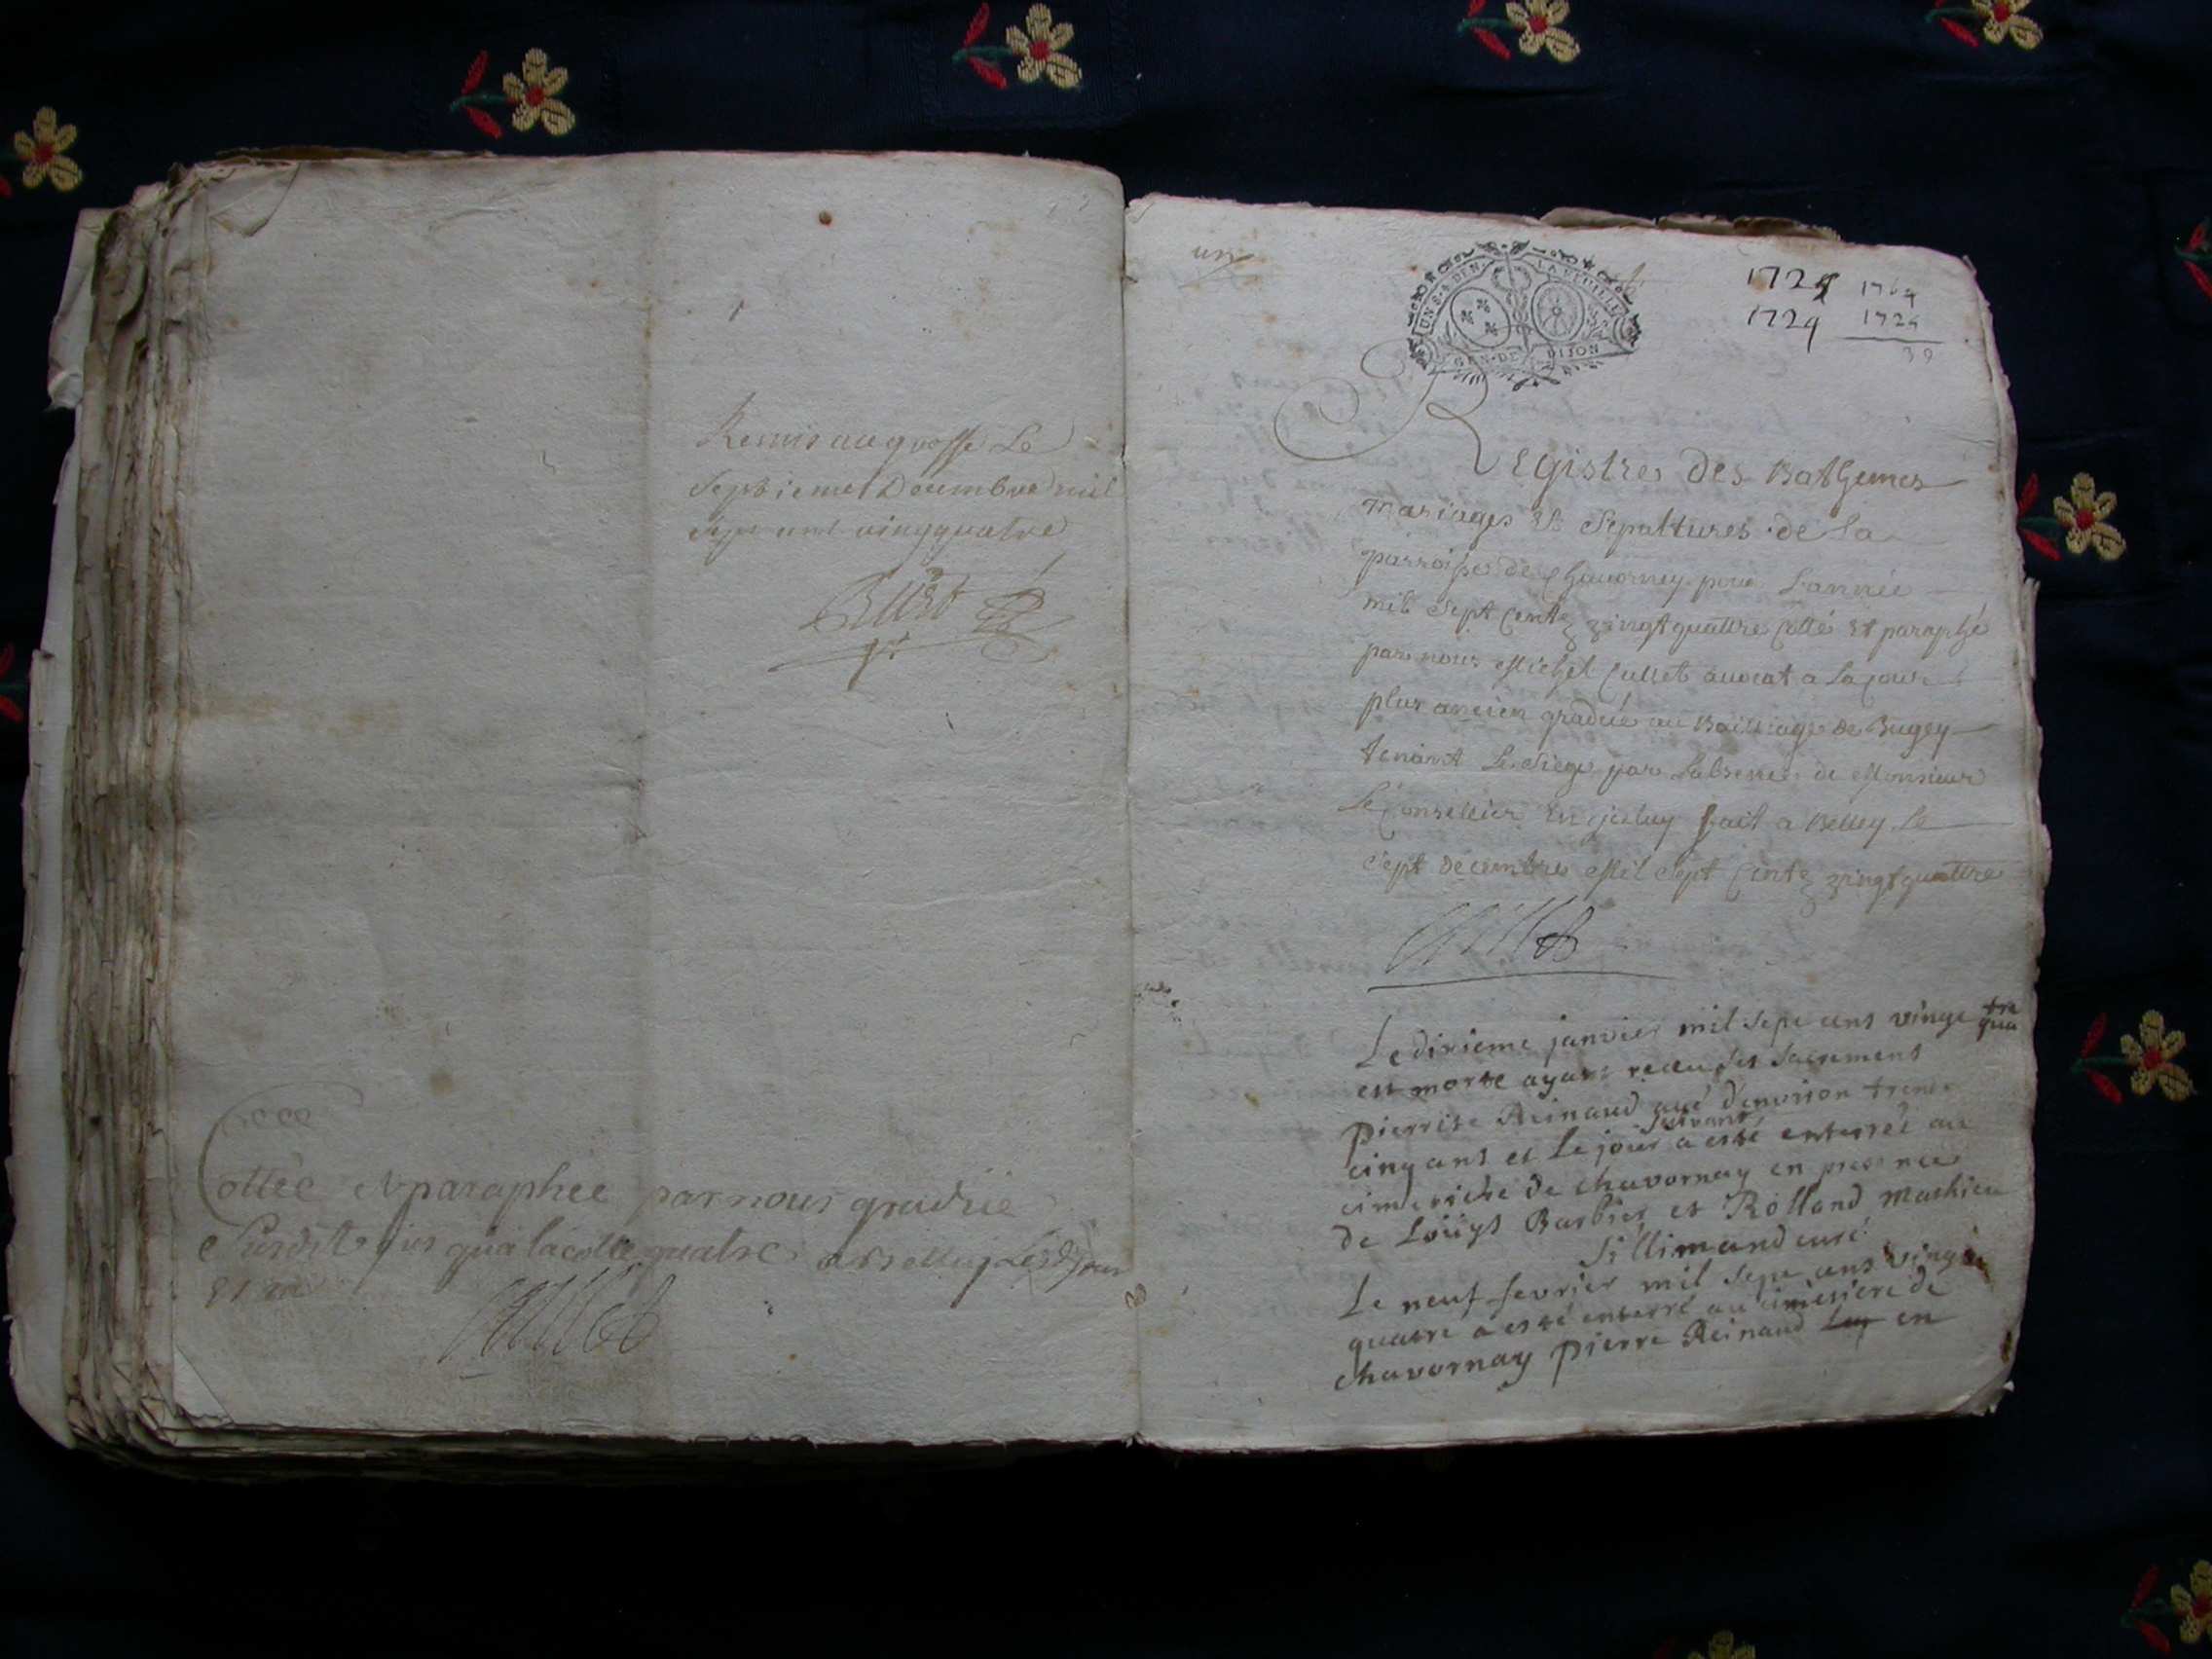 Remis au greffe Le
Septieme Decembre mil
Sept cent vingquatre
Collée et paraphée par nous gradué
Susdit jus qua la cotte quatre a Belley Les d. jour
et an
Cullet
un
UN S. 4 DEN. LA FEUILLE
GEN. DE DIJON
1724 1764
1724 1724
39
Registres Des Bathemes
mariages Et Sepultures de La
parroisse de Chavorney pour Lannée
mil Sept Centz vingt quattre Cotté Et paraphé
par nous Michel Cullet avocat a La Cour
plus ancien gradué au Bailliage de Bugey
tenant Le Siege par Labsence de Monsieur
Le Conseiller fait a Belley Le
Sept decembre Mil Sept Centz vingt quattre
Cullet
Le dixieme janvier mil sept cens vingt qua
tre
est morte ayant receu ses sacremens
pierrise Reinaud agé d'environ trente
cinq ans et Le jour suivant a esté enterrée au
cimetiere de chavornay en presence
de Loüys Barbier et Rolland Mathieu
Sillimand curé
Le neuf fevrier mil sept cens vingt
quatre a esté enterré au cimetiere de
chavornay pierre Reinaud en